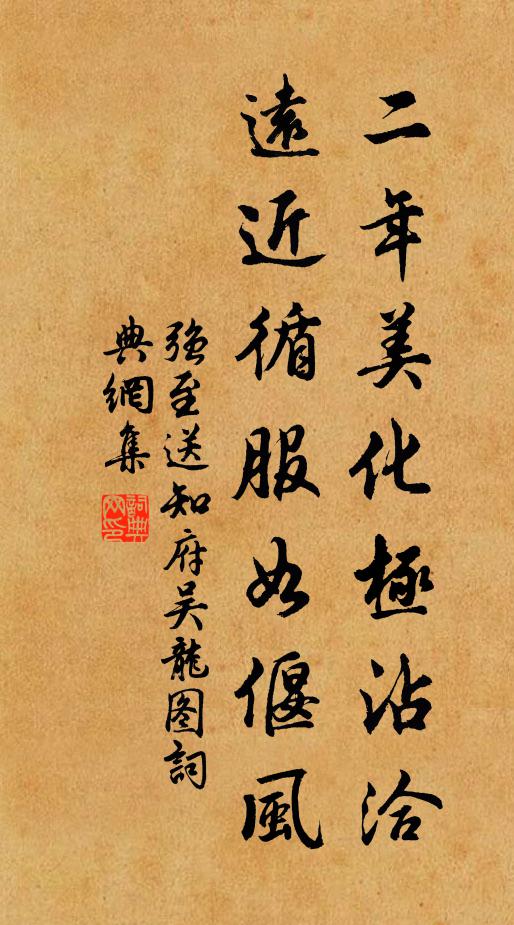 二年美化極沾洽
遠近循服如偃風
强至送知府吴龍图詞
典網集
詞典
网印